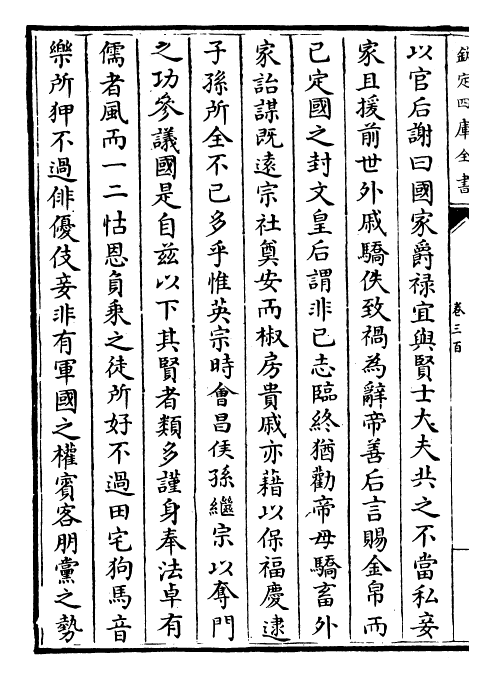 欽定四庫全書
卷三百
以官后謝曰國家爵禄宜與賢士大夫共之不當私妾
家且援前世外戚驕佚致禍為辭帝善后言賜金帛而
已定國之封文皇后謂非已志臨終猶勸帝毋驕畜外
家詒謀既遠宗社奠安而椒房貴戚亦藉以保福慶逮
子孫所全不已多乎惟英宗時會昌侯孫繼宗以奪門
之功參議國是自兹以下其賢者類多謹身奉法卓有
儒者風而一二怙恩負乘之徒所好不過田宅狗馬音
樂所狎不過俳優伎妾非有軍國之權賓客朋黨之勢